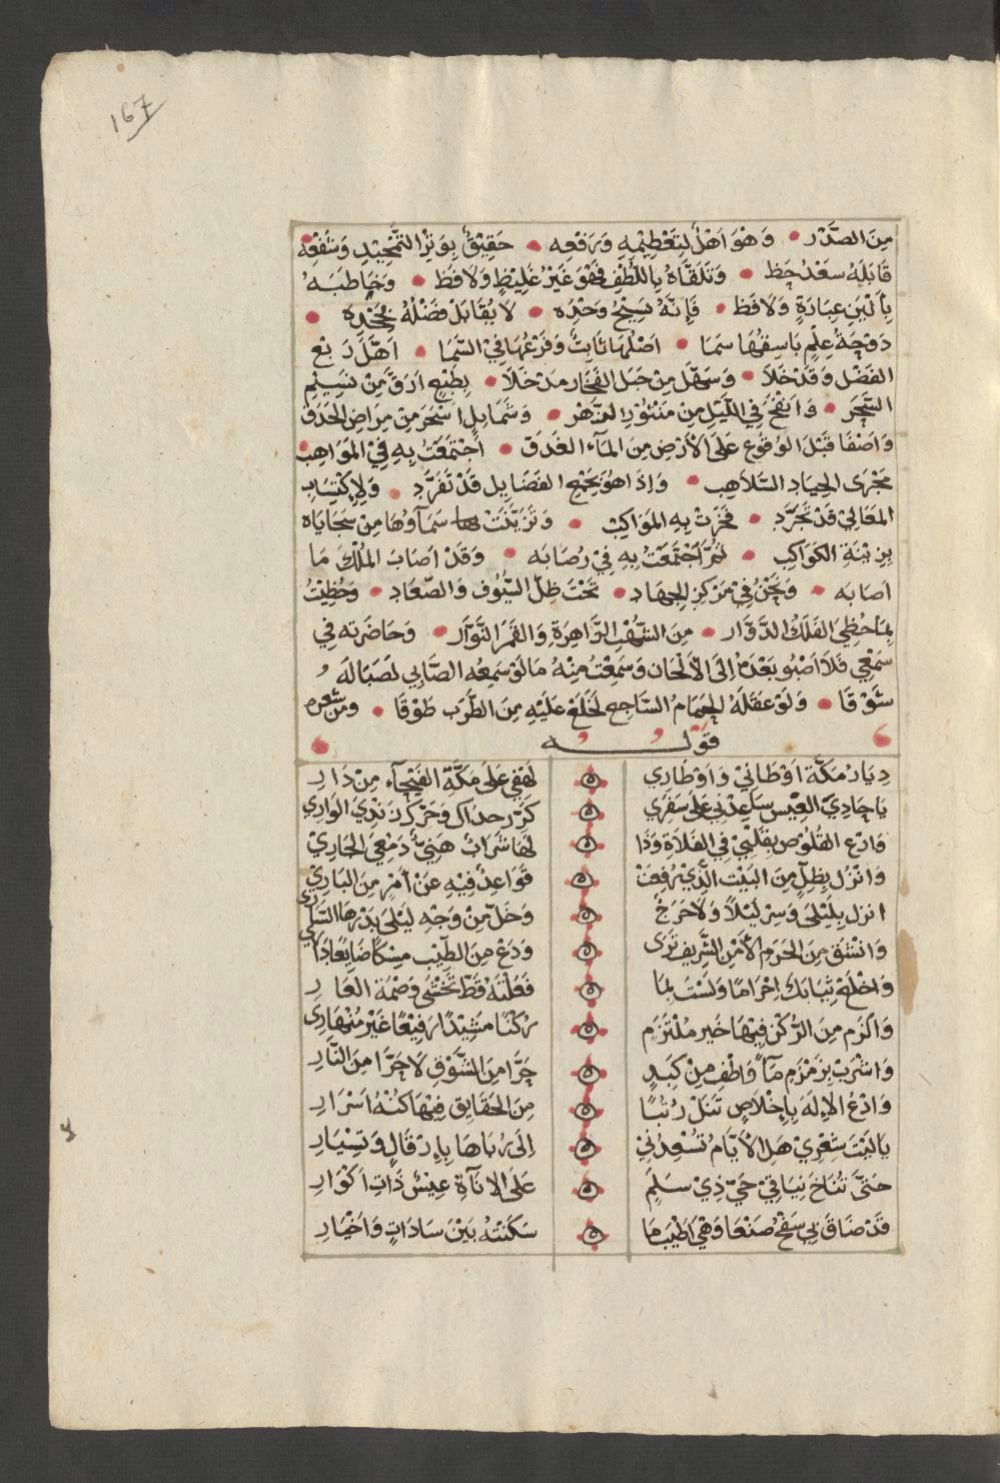 167
مِنَ الصَّدْرِ • وَهْوَ اَهْلٌ لِتَعْظِيْمِهِ وَرَفْعِهِ • حَقِيْقٌ بِوَتْرِ التَّمْجِيْدِ وَشَفْعِهِ
قَابَلَهُ سَعْدُ حَظ • وَتَلَقَّاهُ بِاللُّطْفِ فَهْوَ غَيْرُ غَلِيْظٍ وَلَا فَظ • وَخَاطَبَهُ
بِأَلْيَنِ عِبَارَةٍ وَلَا فَظ • فَاِنَّهُ نَسِيْجُ وَحْدِه • لَا يُقَابَلُ فَضْلُهُ بِجَحْدِه •
دَوْحَةُ عِلْمٍ بَاسِقُهَا سَمَا • اَصْلُهَا ثَابِتٌ وَفَرْعُهَا فِيْ السَّمَا • اَهَّلَ رَبْعَ
الفَضْلِ وَقَدْ خَلَا • وَسَهَّلَ مِنْ جَبَلِ الفَخَار مَدْخَلَا • بِطَبْعٍ اَرَقَّ مِنْ نَسِيْمِ
السَّحَر • وَانْفَحَ فِي اللَّيْلِ مِنْ مَنْثُوْرِ الزَّهْر • وَشَمَايِلٍ اَسْحَرَ مِنْ مِرَاضِ الحَدَق
وَاصْفَا قَبْلَ الوُقُوْعِ عَلَى الْاَرْضِ مِنَ المَآءِ الغَدَق • اَجْتَمَعْتُ بِهِ فِيْ المَوَاهِب
مَجْرَى الجِيَادِ السَّلَاهِب • وَاِذَا هُوَ بِجَمْعِ الفَضَايِل قَدْ تَفَرَّد • وَلِاِكْتِسَابِ
المَعَالِيْ قَدْ تَجَرَّد • فَخَرَتْ بِهِ المَوَاكِبْ • وَتَزَيَّنَتْ سَمَآوُهَا مِنْ سَجَايَاه
بِزِيْنَةِ الكَوَاكِب • ثُمَّ اَجْتَمَعْتُ بِهِ فِيْ رُصَابَه • وَقَدْ اَصَابَ المَلْكَ مَا
اَصَابَه • وَنَحْنُ فِيْ مَرْكَزِ الجِهَاد • تَحْتَ ظِلِّ السُّيُوْف وَالصِّعَاد • وَحُظِيْتُ
بِمَا حُظِيَ الفَلَكُ الدَّوَّار • مِنَ الشُّهُبِ الزَّاهِرَةِ وَالقَمَرِ النَّوَّار • وَحَاضَرَته فِي
سَمْعِي فَلَا اَصْبُو بَعْدَهُ اِلَى الْاَلْحَان وَسَمِعْتُ مِنْهُ مَا لَوْ سَمِعُه الصَّابِي لَصَبَا لَهُ
شَوْقَا • وَلَوْ عَقَلَهُ الحَمَامُ السَّاجِع لَخَلَعَ عَلَيْهِ مِنَ الطَّرَب طَوْقَا • ومن شعره
قوله
دِيَارُ مَكَّةَ اَوْطَانِيْ وَاَوْطَارِي لَهَفِي عَلَى مَكَّةَ الفَيْحَآء مِنْ دَارِ
يَا حَادِيَ العِيْس سَاعِدْنِي عَلَى سَفَرِي كَرِّر حداك وَحَرِّك زَنْدِيَ الوَارِي
وَارْعَ القَلُوْصَ بِقَلْبِيْ فِي الفَلَاةِ وَذَا لَهَا شَرَابٌ هَنِيْءٌ دَمْعِيَ الجَارِيْ
وَانْزَلْ بِظِلٍّ مِنَ البَيْت الَّذِيْ رُفِعَتْ قَوَاعِدٌ فِيْهِ عَنْ اَمْرٍ مِنَ البَارِيْ
انزل بِلَيْلَى وَسِرْ لَيْلاً وَلَا حَرَجٌ وَخَلِّ مِنْ وَجْهِ لَيْلَى بَدْرَهَا السَّارِي
وَانْشَق مِنَ الحَرَمِ الْاَمْنِ الشَّرِيف ثَرَى وَدَعْ مِنَ الطِّيْب مِسْكًا ضَايِعًا دَارِي
وَاخْلَعْ ثِيَابَكَ اِحْرَامًا وَلَسْتَ بِمَا فَعَلْتَهُ قَطّ تَخْشَى وَصْمَةَ العَارِ
وَالزَم مِنَ الرُّكْنِ فِيْهَا خَير مُلْتَزَمٍ رُكْنًا مَشِيْدًا رَفِيْعًا غَيْرَ مُنْهَارِي
وَاشْرَبْ بِزَمْزَمِ مَآءً وَاطْفِ مِنْ كَبِدٍ حَرًّا مِنَ الشَّوْقِ لَا حَرًّا مِنَ النَّارِ
وَادْعُ الاِلَهَ بِاِخْلَاصٍ تَنَلْ رُتَبًا مِنَ الحَقَايِق فِيْهَا كنْهُ اَسْرَارِ
يَا لَيْتَ شِعْرِيْ هَلِ الْاَيَّامُ تُسْعِدُنِيْ اِلَى رُبَاهَا بِاِرْقَالٍ وَتَسْيَارِ
حَتَّى تُنَاخَ نِيَاقِيْ حَيَّ ذِيْ سَلَمٍ عَلَى الاِنَآةِ عِيْسٌ ذَات اَكْوَارِ
قَدْ ضَاقَ بِي سَفْحُ صَنْعَا وَهْيَ اَطْيَبُ مَا سَكَنْتُه بَيْنَ سَادَاتٍ وَاَخْيَارِ